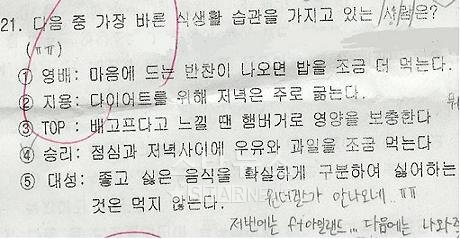 21. 다음 중 가장 바른 식생활 습관을 가지고 있는 사람은?
(ㅠㅠ)
① 영배: 마음에 드는 반찬이 나오면 밥을 조금 더 먹는다.
② 지용: 다이어트를 위해 저녁은 주로 굶는다.
③ TOP : 배고프다고 느낄 땐 햄버거로 영양을 보충한다
④ 승리: 점심과 저녁사이에 우유와 과일을 조금 먹는다
⑤ 대성: 좋고 싫은 음식을 확실하게 구분하여 싫어하는
것은 먹지 않는다. 원더걸가 안나오네.. ㅠㅠ
저번에는 ft아일랜드... 다음에는 나와줘